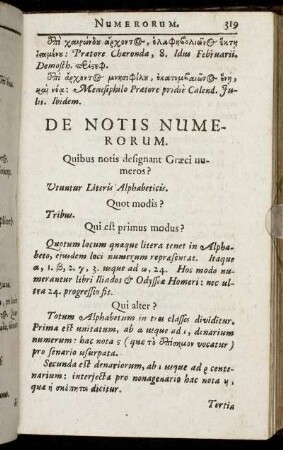 NUMERORUM. 319
Ἐπὶ χαιρώνδυ ἄρχοντ☉, ἐλαφηβολιῶν☉ ἕκτῃ
ἱσαμένυ: Prætore Charonda, 8. Idus Februarii.
Demosth.
Ἐπὶ ἄρχοντ☉ μνησιφίλυ, ἑκατομβαιῶν☉ ἕνῃ
καὶ νέα: Menesiphilo Prætore pridie Calend. Ju-
lii. Ibidem.
DE NOTIS NUME-
RORUM.
Quibus notis designant Græci nu-
meros?
Utuntur Literis Alphabeticis.
Quot modis?
Tribus.
Qui est primus modus?
Quotum locum quæque litera tenet in Alpha-
beto, ejusdem loci numerum repræsentat. Itaque
α, 1. β, 2. γ, 3. usque ad ω, 24. Hoc modo nu-
merantur libri Iliados & Odysseæ Homeri: nec ul-
tra 24. progressio fit.
Qui alter?
Totum Alphabetum in tres classes dividitur.
Prima est unitatum, ab α usque ad ι, denarium
numerum: hac nota ϛ (quæ τὸ ἐπίσημον vocatur)
pro senario usurpata.
Secunda est denariorum, ab ι usque ad ρ cente-
narium: interjecta pro nonagenario hac nota ϟ,
quæ ἢ dicitur.
Tertia